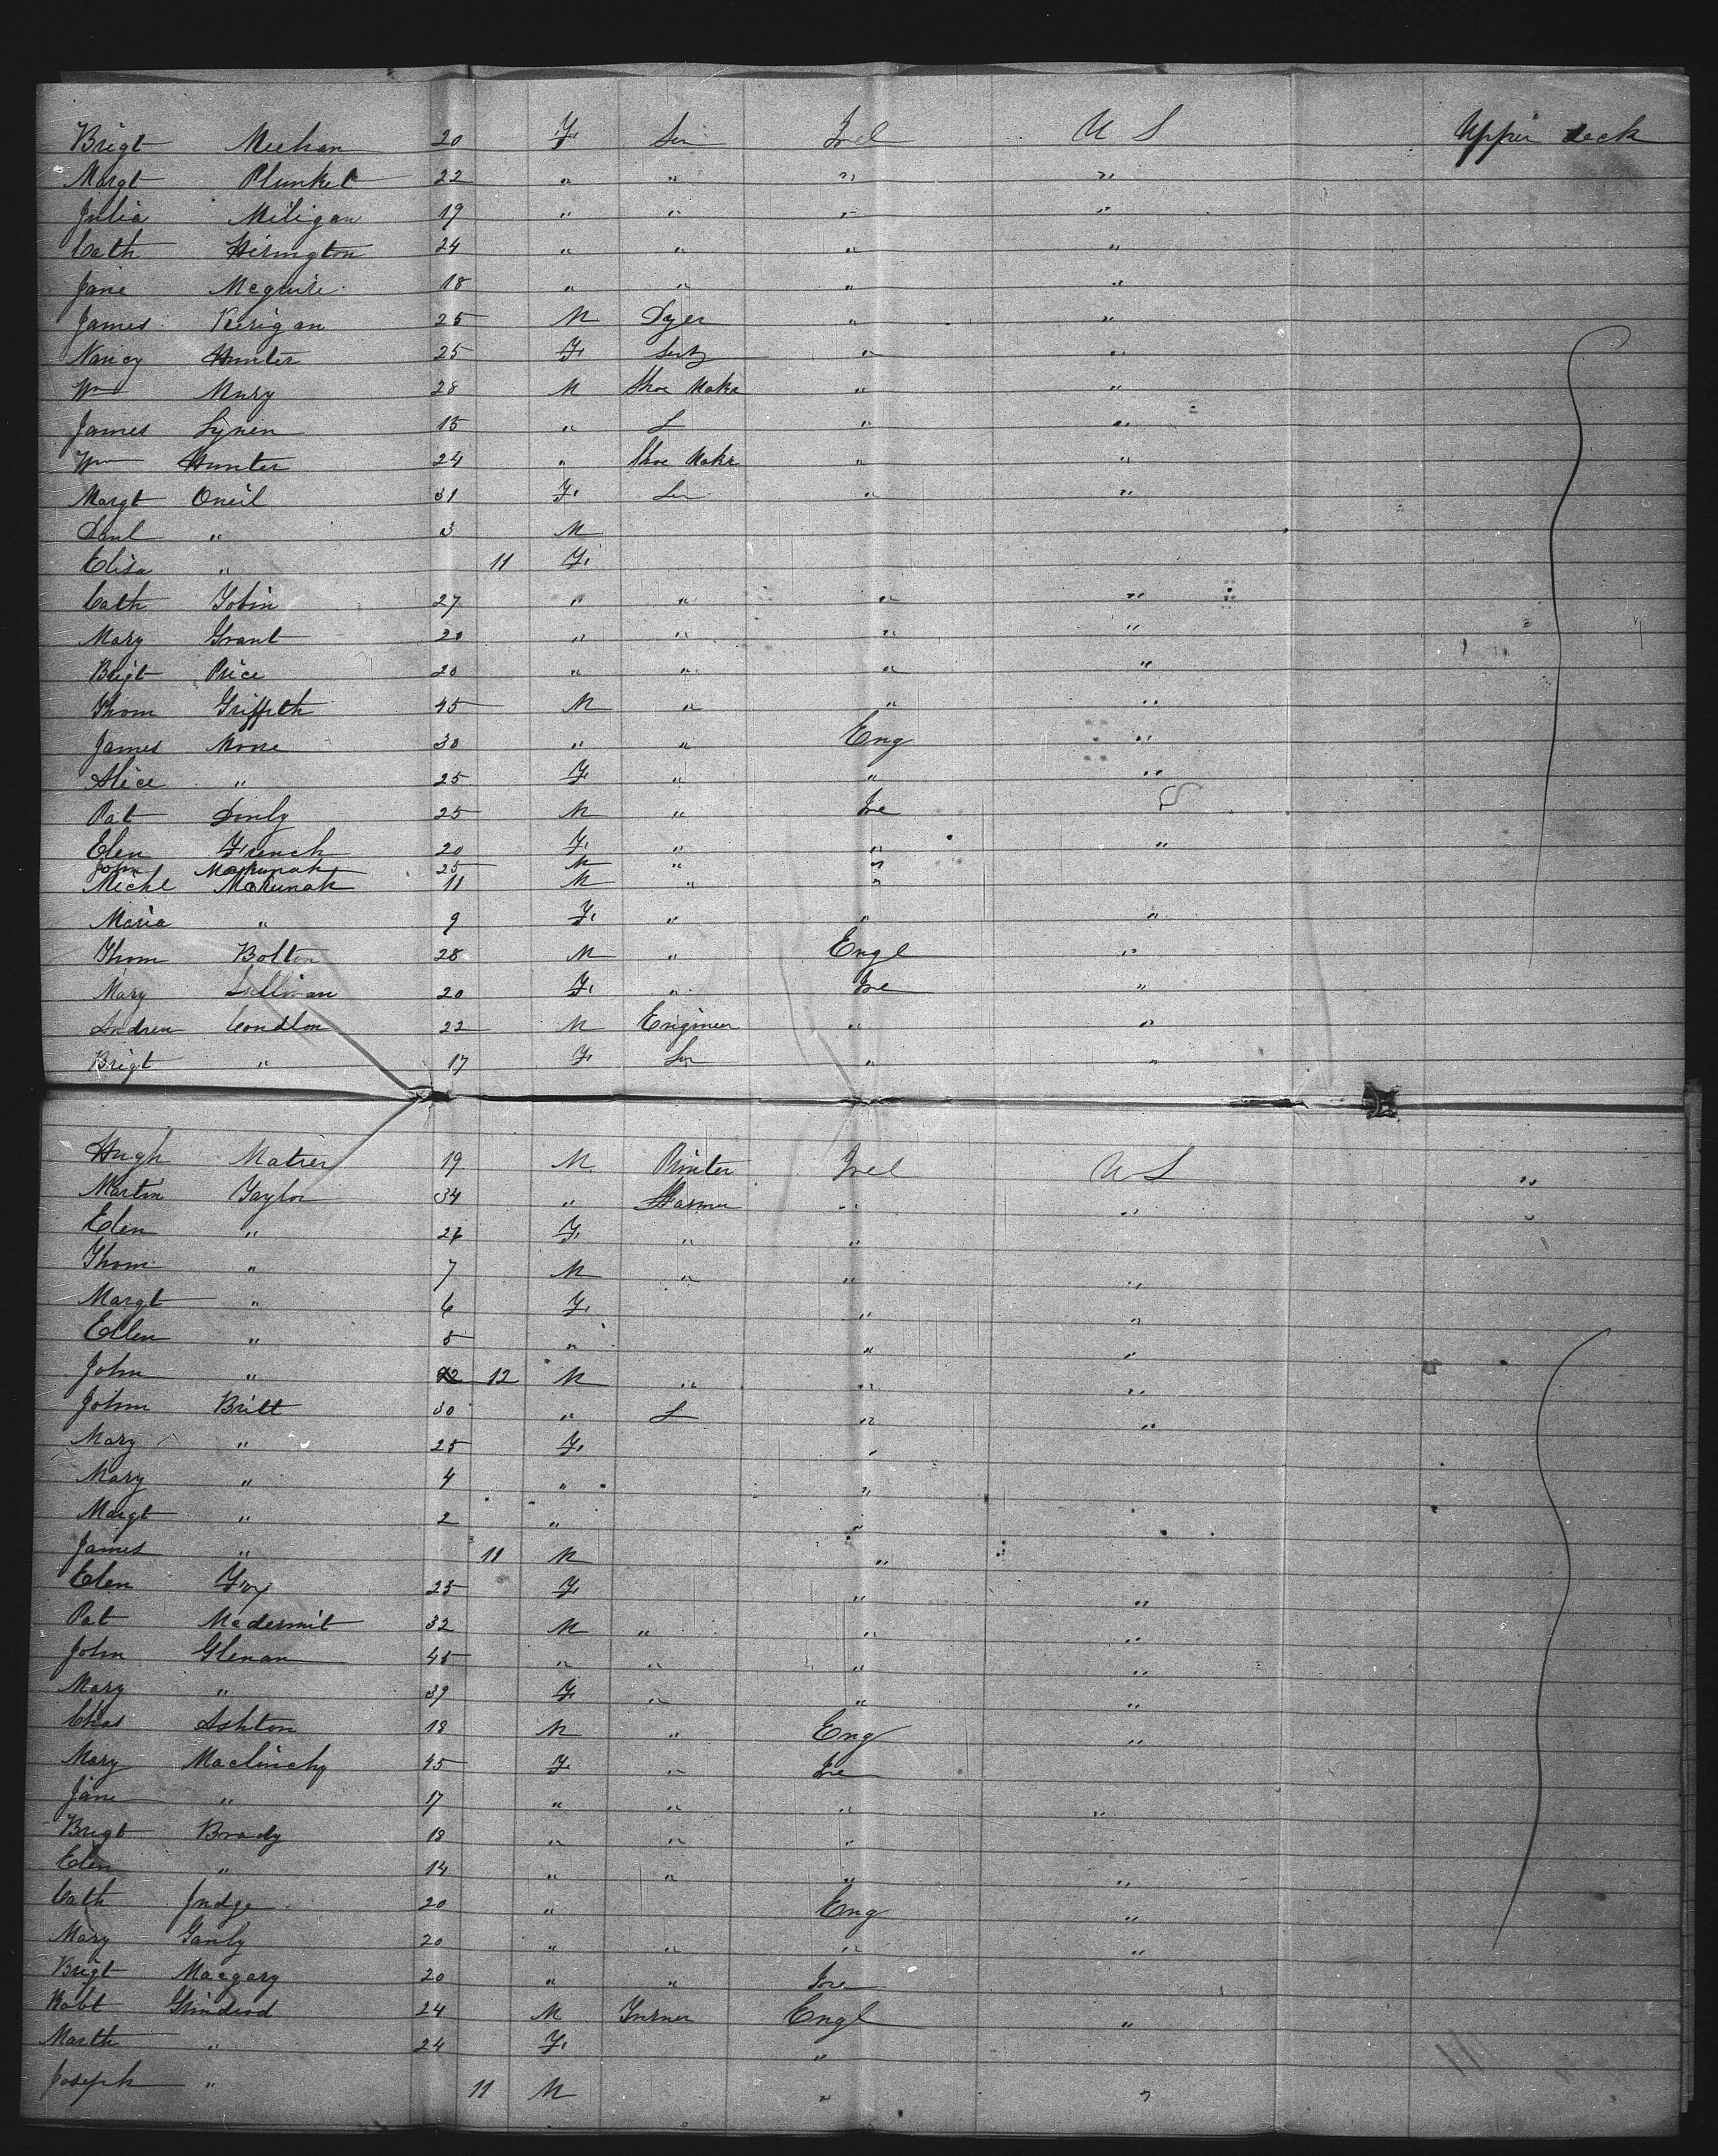 Brigt Meehan 20 F Ser Irel U S Upper deck
Margt Plunket 22 " " " "
Julia Miligan 19 " " " "
Cath Hirington 24 " " " "
Jane Mcguire 18 " " " "
James Kerigan 25 M Dyer " "
Nancy Hunter 25 F " "
Wm Mury 28 M Shoe Makr " "
James Lynen 15 " L " "
Wm Hunter 24 " Shoe Makr " "
Margt Oneil 31 F Ser " "
Danl " 3 M
Elisa " 11 F
Cath Tobin 27 " " " "
Mary Grant 20 " " " "
Brigt Price 20 " " " "
Thom Griffith 45 M " " "
James Mone 30 " " Eng "
Alice " 25 F " " "
Pat Donly 25 M " Ire
Elen French 20 F " " "
John Makunah 25 M " "
Michl Makunah 11 M " "
Maria " 9 F " " "
Thom Bolton 28 M " Engl "
Mary Sullivan 20 F " Ire "
Andrew Condlon 22 M Engineer " "
Brigt " 17 F Ser " "
Hugh Matier 19 M Printer Irel U S "
Martin Taylor 34 " Farmer " " "
Elen " 26 F " "
Thom " 7 M " " "
Margt " 6 F " "
Ellen " 5 " " "
John " 12 M " " "
John Britt 30 " L " "
Mary " 25 F "
Mary " 4 " "
Margt " 2 " "
James " 11 M "
Elen Foy 25 F " "
Pat Macdermit 32 M " " "
John Glenan 45 " " " "
Mary " 39 F " " "
Chas Ashton 18 M " Eng "
Mary Maclinchy 45 F " Ire
Jane " 17 " " " "
Brigt Brady 18 " " "
Elen " 14 " " " "
Cath Judge 20 " Eng "
Mary Ganly 20 " " " "
Brigt Macgary 20 " " Ire
Robt Grindrod 24 M Turner Engl "
Marth " 24 F "
Joseph " 11 M " "